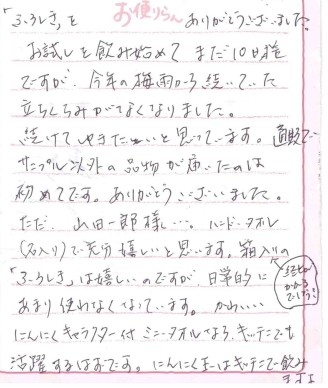 お便りらん
「ふろしき」を ありがとうございました。
お試しを飲み始めて まだ10日様
ですが、今年の梅雨から続いていた
立ちくらみがなくなりました。
続けて いきたいと思っています。通販で
サンプル以外の品物が届いたのは
初めてです。ありがとうございました。
ただ、山田一郎様…。ハンドタオル
(名入り)で充分嬉しいと思います。箱入りの
経ヒが
かかる
でしょう!
「ふろしき」は嬉しいのですが、日常的に
あまり使わなくなっています。かわ…
にんにくキャラクター付ミニータオルなら、キッチンでも
活躍するはずです。にんにく玉はキッチンで飲み
ますよ